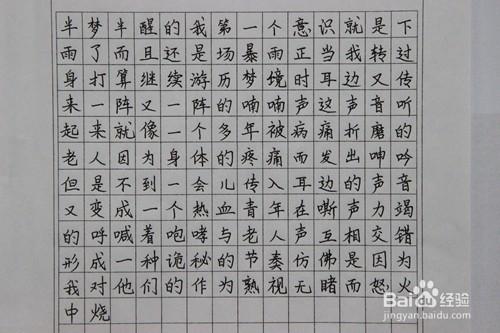 半梦半醒的我第一个意识就是下
雨了而且还是场暴雨正当我转过
身打算继续游历梦境时耳边又传
来一阵又一阵的喃喃声这声音听
起来就像一个多年被病痛折磨的
老人因为身体的疼痛而发出呻吟
但是不到一会儿传入耳边的声音
又变成一个热血青年在嘶声力竭
的呼喊着咆哮与老人声互相交错
形成一种诡秘的节奏仿佛是因为
我对他们的作为熟视无睹而怒火
中烧
Baidu百度经验
jingyan.baidu.com